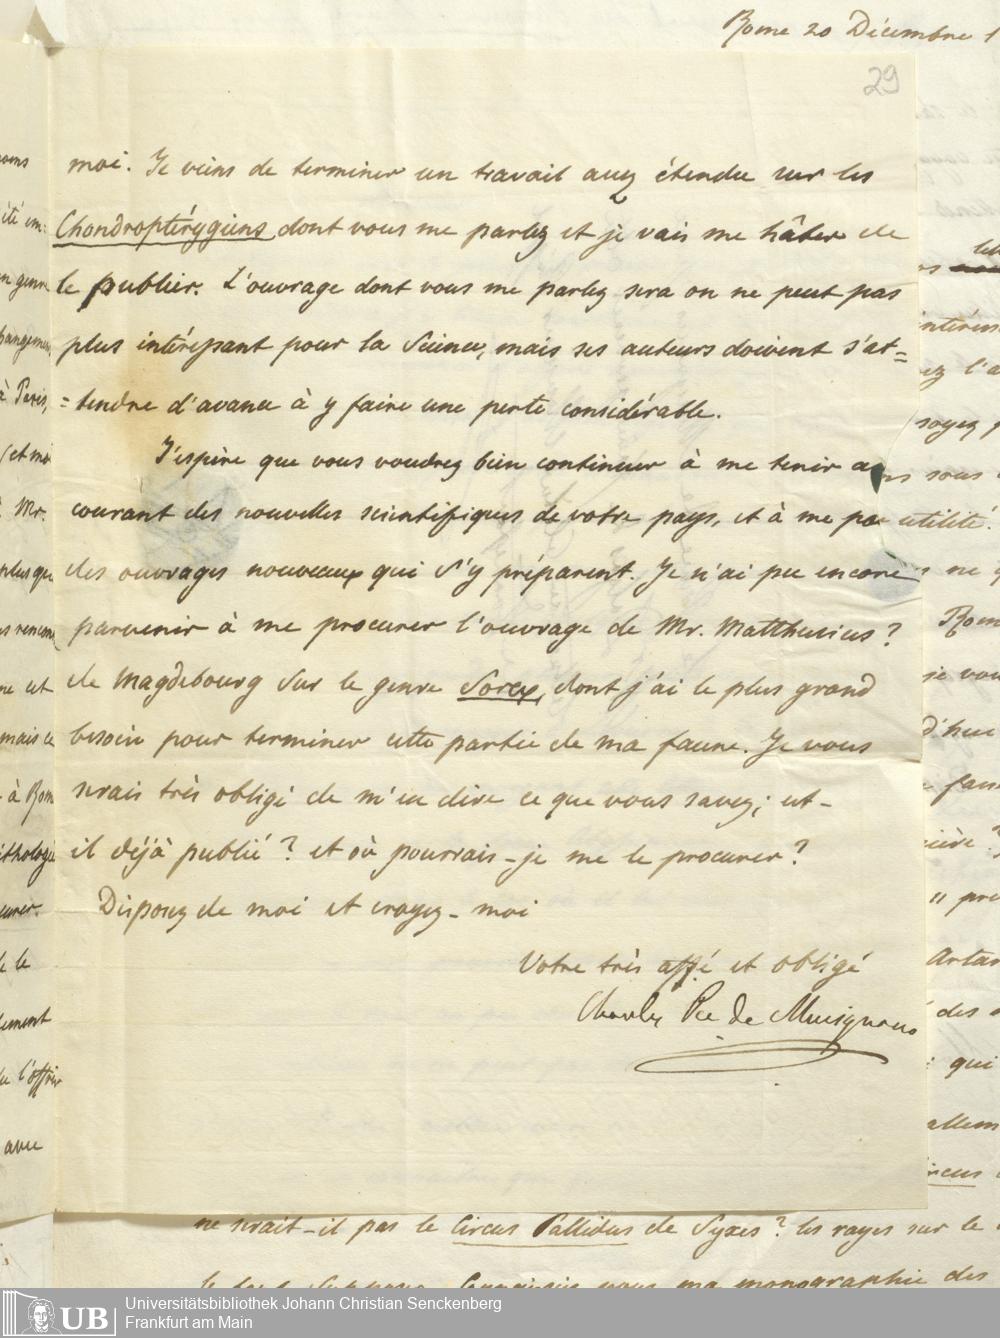 Rome 20 Décembre 1
29
moi. Je viens de terminer un travail assez étendu sur les
Chondroptérygiens dont vous me parlez et je vais me hâter de
le publier. L'ouvrage dont vous me parlez sera on ne peut pas
plus intéressant pour la Science, mais ses auteurs doivent s'at=
=tendre d'avance à y faire une perte considérable.
J'espère que vous voudrez bien continuer à me tenir au
courant des nouvelles scientifiques de votre pays, et à me pa
des ouvrages nouveaux qui s'y préparent. Je n'ai pu encore
parvenir à me procurer l'ouvrage de Mr. Matthusius?
de Magdebourg sur le genre Sorex, dont j'ai le plus grand
besoin pour terminer cette partie de ma faune. Je vous
serais très obligé de m'en dire ce que vous savez; est-
il déjà publié? et où pourrais-je me le procurer?
Disposez de moi et croyez-moi
Votre très affé et obligé
Charles Pce de Musignano
à Paris,
(et moi
Mr.
plus que
mais ce
à Rom
de le
l'offrir
avec
soyez
sous
utilité.
ne
Rom
je vou
"pre
des
qui
allem
ne serait-il pas le Circus Pallidus de Sykes? les rayes sur le
ma monographie des
UB
Universitätsbibliothek Johann Christian Senckenberg
Frankfurt am Main